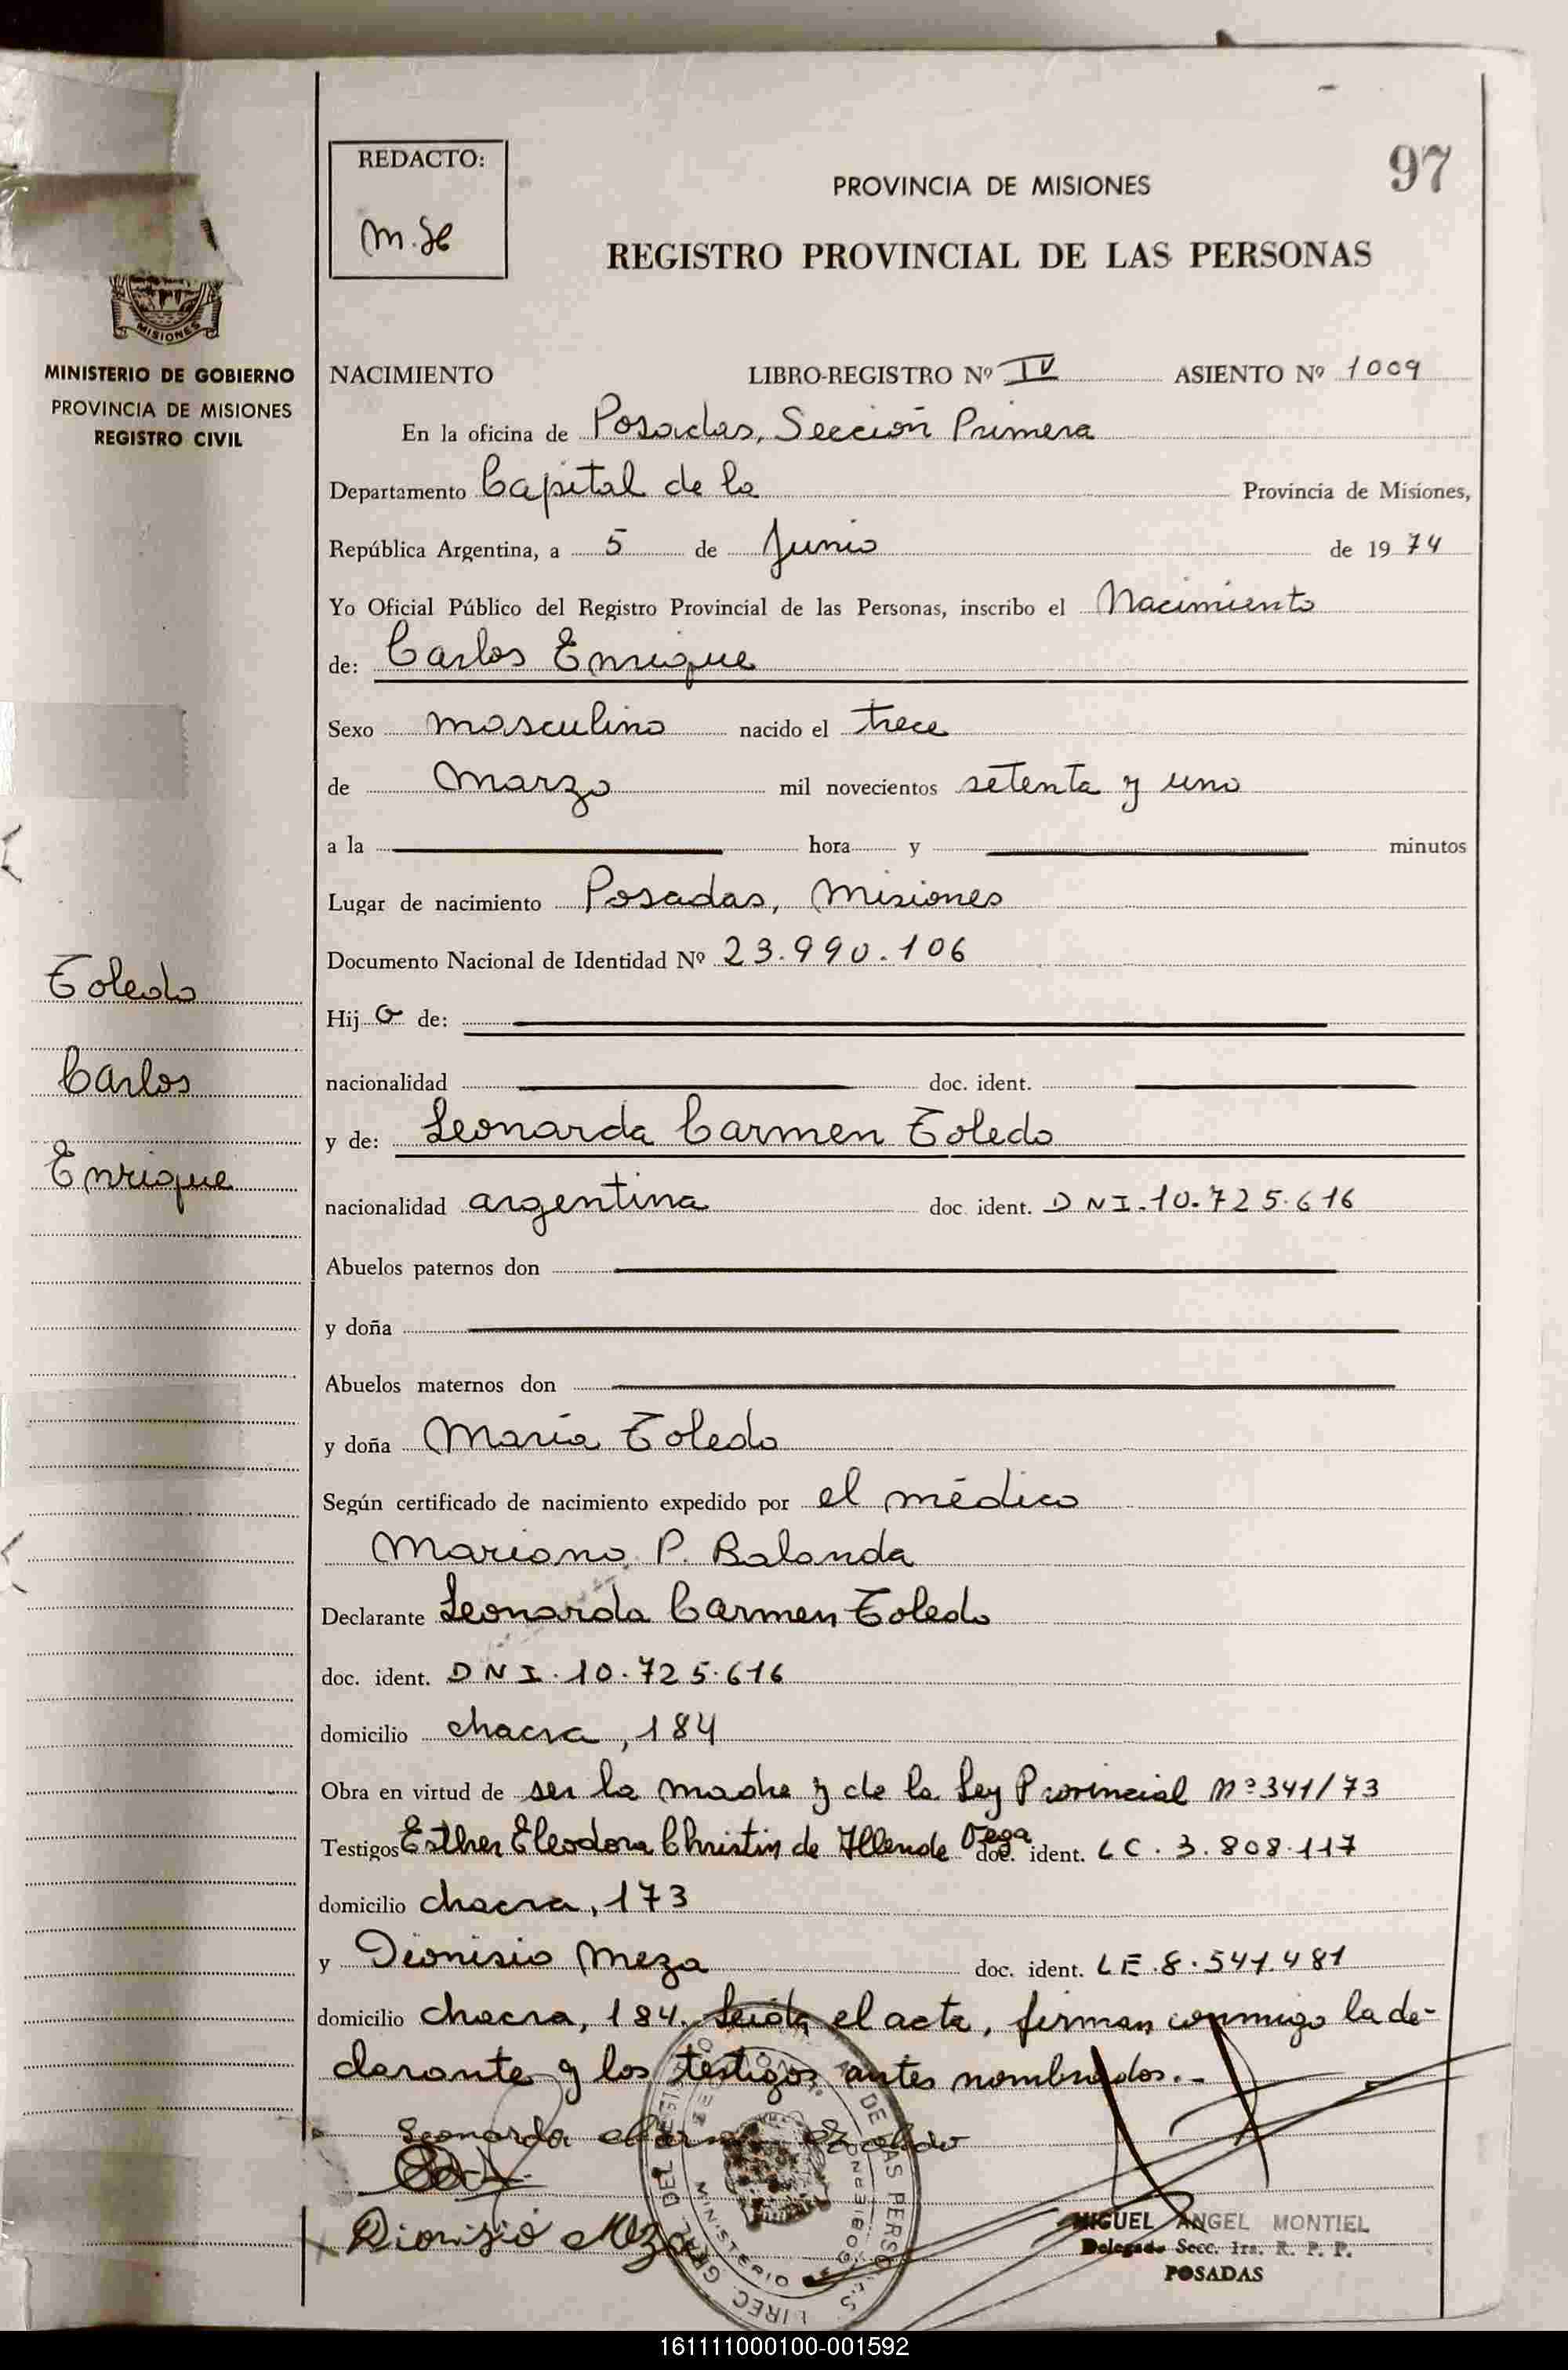 97
REDACTO:
M.H
PROVINCIA DE MISIONES
REGISTRO PROVINCIAL DE LAS PERSONAS
MISIONES
MINISTERIO DE GOBIERNO
PROVINCIA DE MISIONES
REGISTRO CIVIL
NACIMIENTO LIBRO-REGISTRO Nº IV ASIENTO Nº 1009
En la oficina de Posadas, Sección Primera
Departamento Capital de la Provincia de Misiones,
República Argentina, a 5 de Junio de 1974
Yo Oficial Público del Registro Provincial de las Personas, inscribo el Nacimiento
de: Carlos Enrique
Sexo masculino nacido el trece
de Marzo mil novecientos setenta y uno
a la hora y minutos
Lugar de nacimiento Posadas, Misiones
Documento Nacional de Identidad Nº 23.990.106
Toledo
Carlos
Enrique
Hijo de:
nacionalidad doc. ident.
y de: Leonarda Carmen Toledo
nacionalidad argentina doc. ident. DNI.10.725.616
Abuelos paternos don
y doña
Abuelos maternos don
y doña María Toledo
Según certificado de nacimiento expedido por el médico
Mariano P. Balanda
Declarante Leonarda Carmen Toledo
doc. ident. DNI.10.725.616
domicilio chacra, 184
Obra en virtud de ser la madre y de la Ley Provincial Nº 341/73
Testigos Esther Eleodora Christin de Allende Vega doc. ident. LC.3.808.117
domicilio chacra, 173
y Dionisio Meza doc. ident. LE.8.541.481
domicilio chacra, 184. Leída el acta, firman conmigo la de-
clarante y los testigos antes nombrados.-
Leonarda Carmen Toledo
Dionisio Meza
MIGUEL ANGEL MONTIEL
Delegado Secc. 1ra. R. P. P.
POSADAS
161111000100-001592